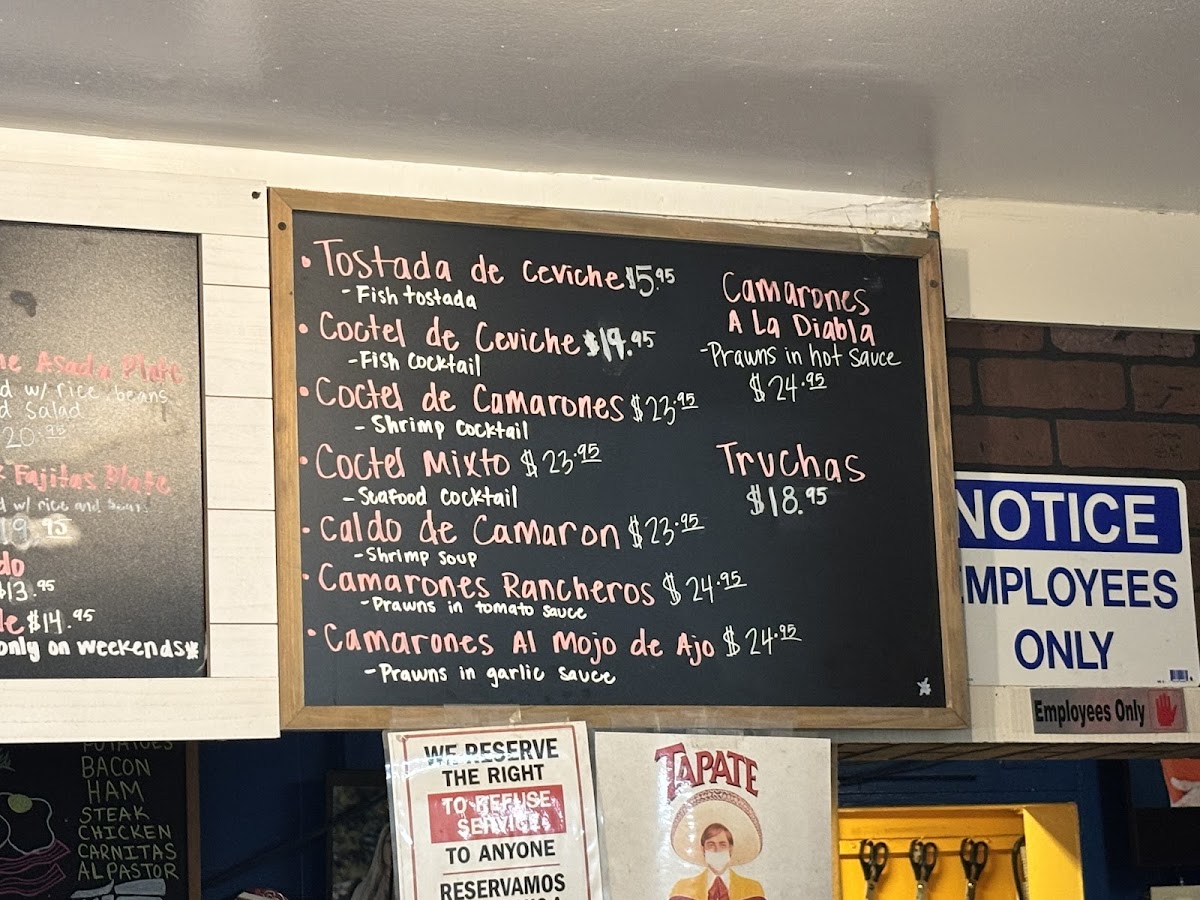 Asada Plate
w/ rice, beans
Salad
20.95
Fajitas Plate
w/ rice and
19.95
$13.95
$14.95
only on weekends*
• Tostada de Ceviche $5.95
- Fish tostada
• Coctel de Ceviche $19.95
- Fish cocktail
• Coctel de Camarones $23.95
- Shrimp cocktail
• Coctel Mixto $23.95
- Seafood cocktail
• Caldo de Camaron $23.95
- Shrimp soup
• Camarones Rancheros $24.95
- Prawns in tomato sauce
• Camarones Al Mojo de Ajo $24.95
- Prawns in garlic sauce
Camarones
A La Diabla
- Prawns in hot sauce
$24.95
Truchas
$18.95
NOTICE
EMPLOYEES
ONLY
Employees Only
POTATOES
BACON
HAM
STEAK
CHICKEN
CARNITAS
AL PASTOR
WE RESERVE
THE RIGHT
TO REFUSE
SERVICE
TO ANYONE
RESERVAMOS
TAPATE